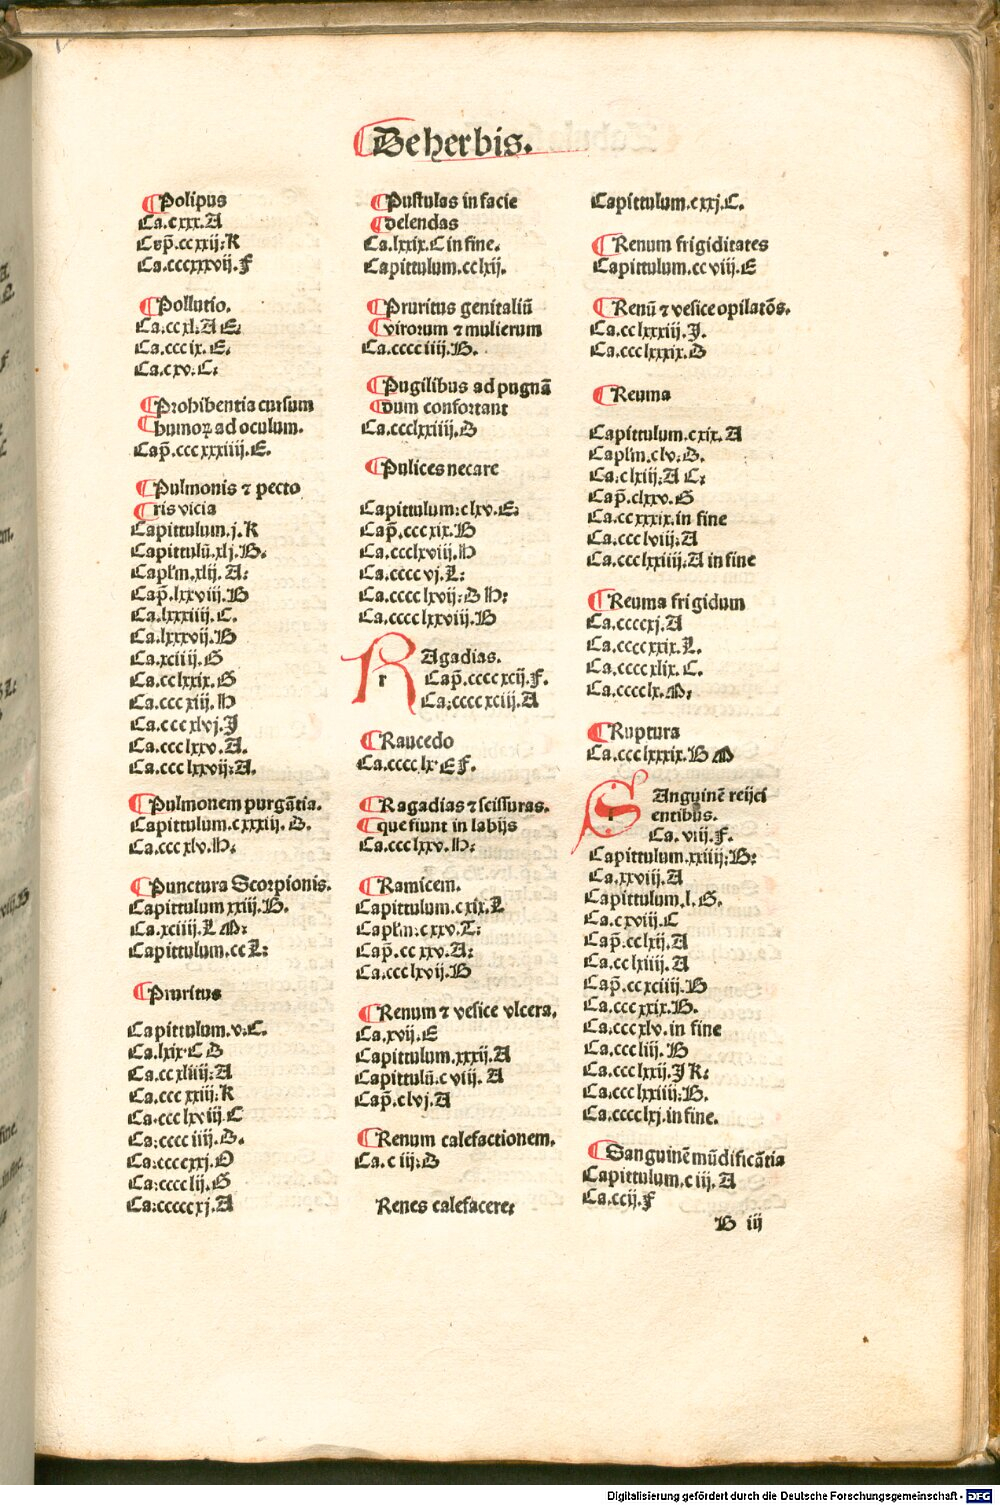 De herbis.
Polipus
Ca.cxxx.A
Cap̄.ccxxij.K
Ca.cccxxxvij.F
Pollutio.
Ca.ccxl.A E.
Ca.cccix.E.
Ca.cxv.C.
Prohibentia cursum
humoꝝ ad oculum.
Cap̄.cccxxxiiij.E.
Pulmonis ⁊ pecto
ris vicia
Capittulum.j.K
Capittulū.xlj.B.
Caplm̄.xlij.A:
Cap̄.lxxviij.B
Ca.lxxxiiij.C.
Ca.lxxxvij.B
Ca.xciiij.G
Ca.cclxix.G
Ca.cccxiij.H
Ca.cccxlvj.J
Ca.ccclxxv.A.
Ca.ccclxxvij:A.
Pulmonem purgātia.
Capittulum.cxxxiij.D.
Ca.cccxlv.H:
Punctura Scorpionis.
Capittulum xxiij.B.
Ca.xciiij.L M:
Capittulum.cc L:
Pruritus
Capittulum.v.C.
Ca.lxix.C D
Ca.ccxliiij:A
Ca.cccxxiij:K
Ca.ccclxviij.C
Ca:cccciiij.D.
Ca:ccccxxj.O
Ca:cccclij.G
Ca:cccccxj.A
Pustulas in facie
delendas
Ca.lxxix.C in fine.
Capittulum.cclxij.
Pruritus genitaliū
virorum ⁊ mulierum
Ca.cccciiij.B.
Pugilibus ad pugnā
dum confortant
Ca.ccclxxiiij.D
Pulices necare
Capittulum:clxv.E:
Cap̄.cccxix.B
Ca.ccclxviij.H
Ca.ccccvj.L:
Ca.cccclxvij:D H:
Ca.cccclxxviij.B
RAgadias.
r
Cap̄.ccccxcij.F.
Ca:ccccxciij.A
Raucedo
Ca.cccclx E F.
Ragadias ⁊ scissuras.
que fiunt in labijs
Ca.ccclxxv.H:
Ramicem.
Capittulum.cxix.L
Caplm̄:cxxv.T:
Cap̄.ccxxv.A:
Ca:ccclxvij.B
Renum ⁊ vesice vlcera.
Ca.xvij.E
Capittulum.xxxij.A
Capittulū.cviij.A
Cap̄.clvj.A
Renum calefactionem.
Ca.ciij:D
Renes calefacere:
Capittulum.cxxj.C.
Renum frigiditates
Capittulum.ccviij.E
Renū ⁊ vesice opilatōs.
Ca.cclxxxiij.J.
Ca.ccclxxxix.D
Reuma
Capittulum.cxix.A
Caplm̄.clv.D.
Ca:clxiij:A C:
Cap̄.clxxv.G
Ca.ccxxxix.in fine
Ca.ccclviij:A
Ca.ccclxxiiij.A in fine
Reuma frigidum
Ca.ccccxj.A
Ca.ccccxxix.L.
Ca.ccccxlix.C.
Ca.cccclx.M:
Ruptura
Ca.ccclxxxix.B M
SAnguinē reijci
entibus.
Ca.viij.F.
Capittulum.xxiiij:B:
Ca.xxviij.A
Capittulum.l.G.
Ca.cxviij.C
Cap̄.cclxij.A
Ca.cclxiiij.A
Cap̄.ccxciiij.B
Ca.cccxxix.B.
Ca.cccxlv.in fine
Ca.cccliij.B
Ca.ccclxxij.J K:
Ca.ccclxxiiij.B.
Ca.cccclxj.in fine.
Sanguinē mūdificātia
Capittulum.ciij.A
Ca.ccij.F
B iij
Digitalisierung gefördert durch die Deutsche Forschungsgemeinschaft - DFG